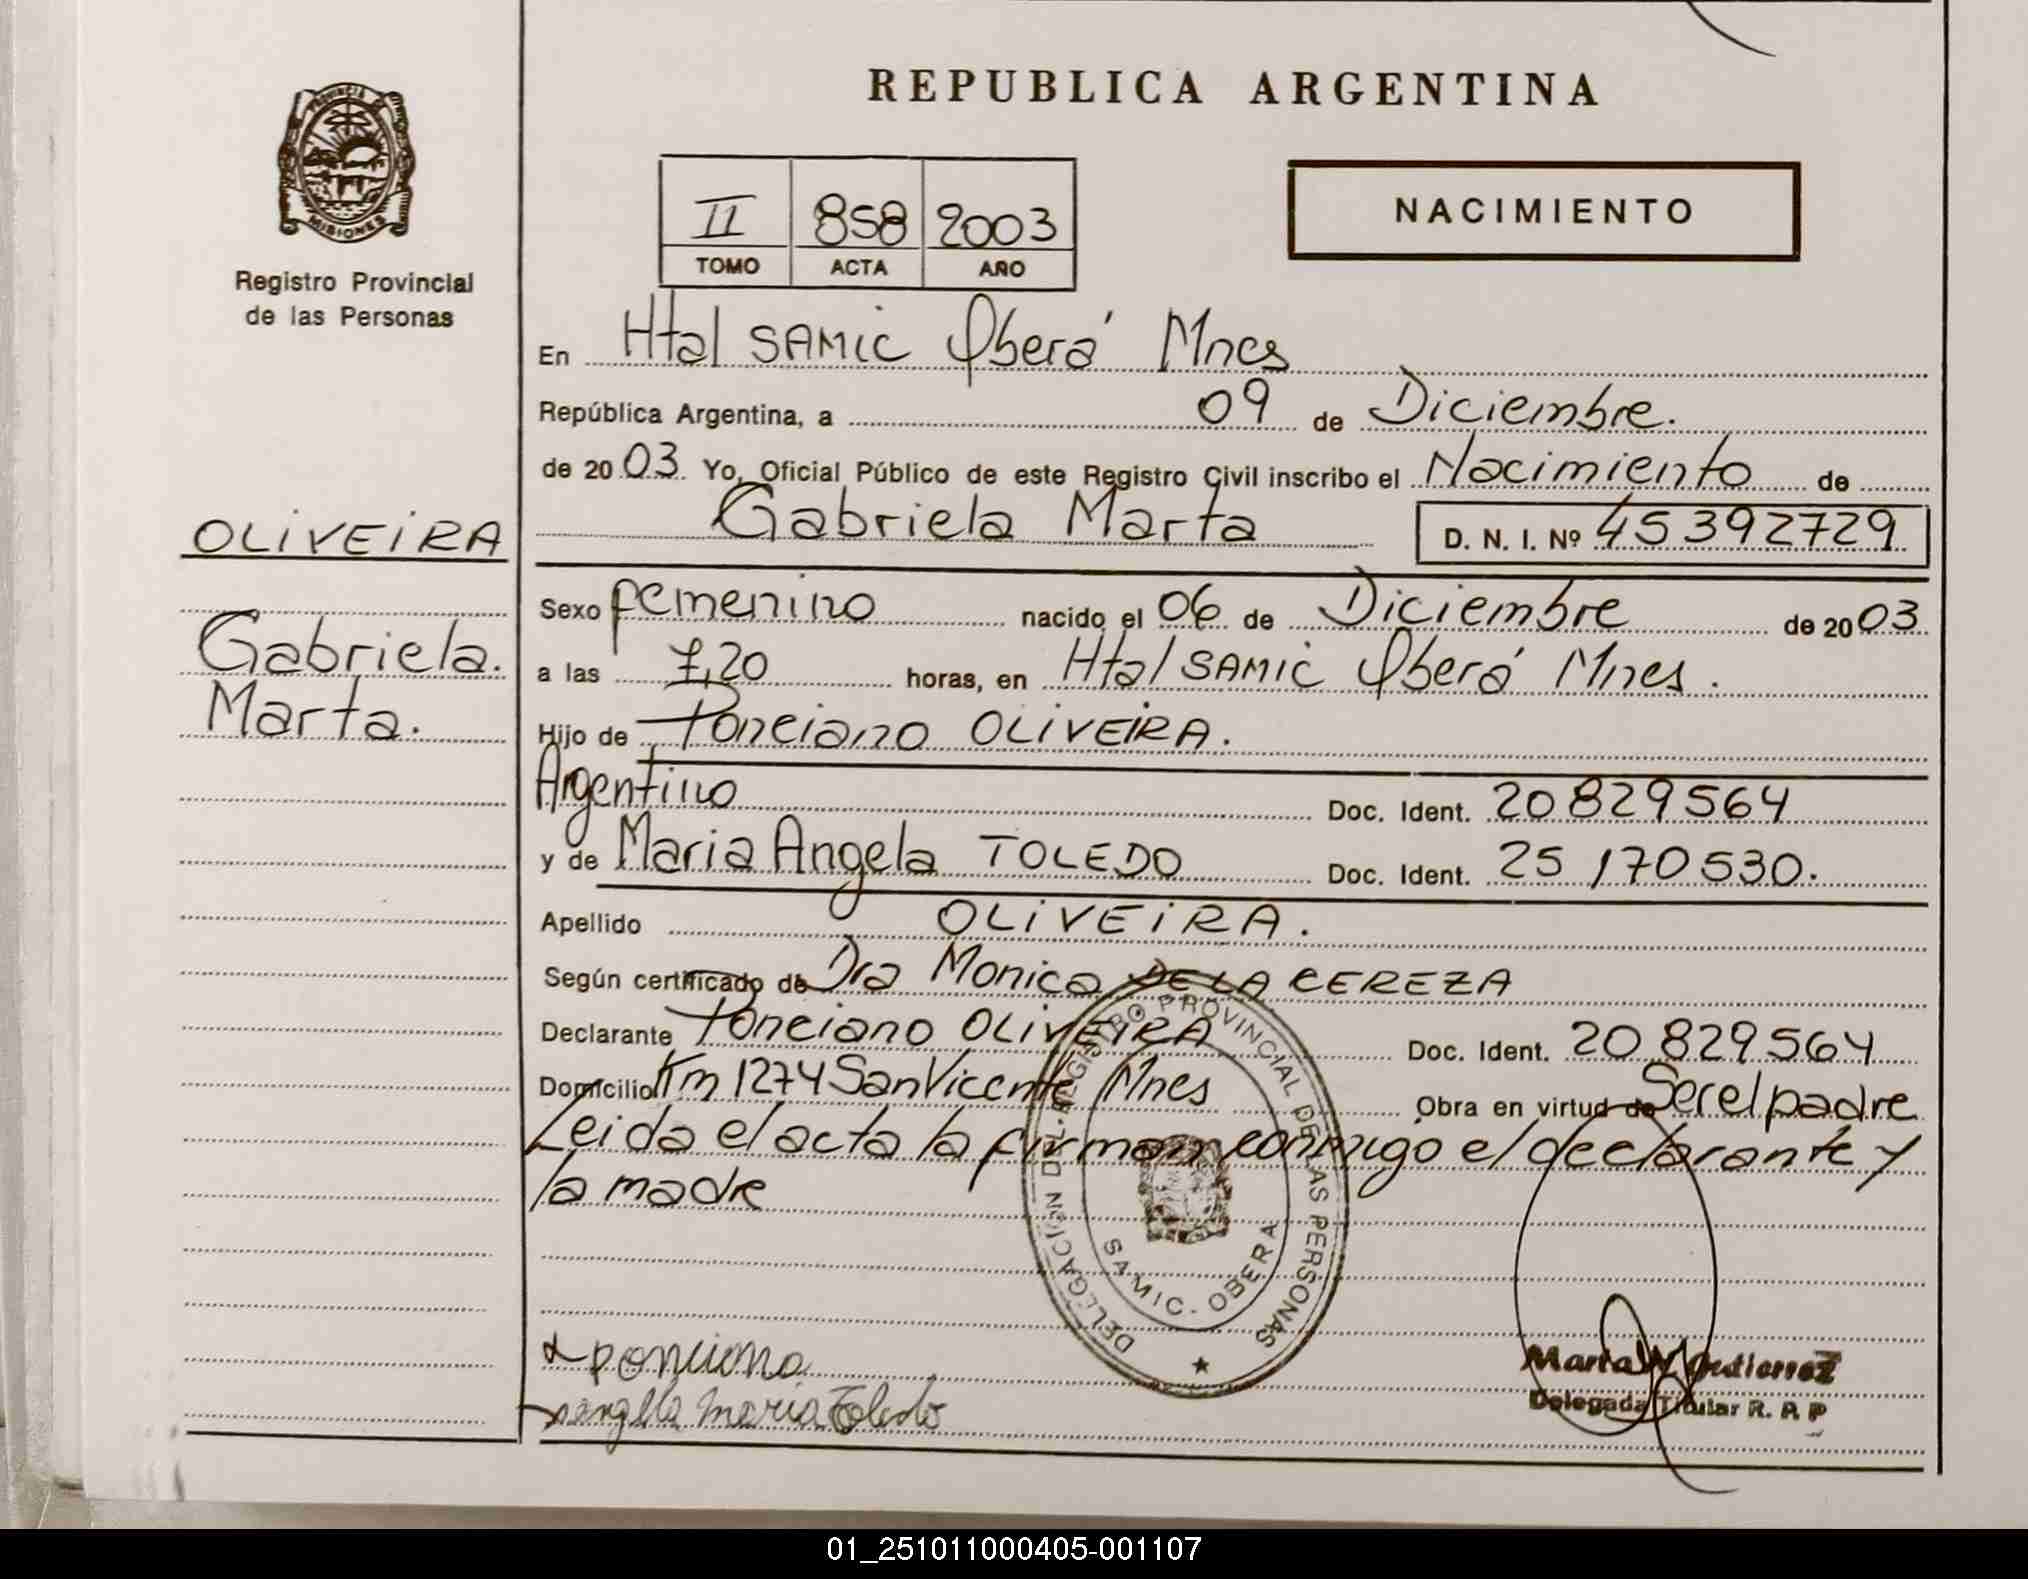 REPUBLICA ARGENTINA
PROVINCIA DE
MISIONES
Registro Provincial
de las Personas
II 858 2003
TOMO ACTA AÑO
NACIMIENTO
En Htal SAMIC Oberá Mnes
República Argentina, a 09 de Diciembre.
de 2003. Yo, Oficial Público de este Registro Civil inscribo el Nacimiento de
Gabriela Marta D. N. I. Nº 45392729
OLIVEIRA
Gabriela.
Marta.
Sexo femenino nacido el 06 de Diciembre de 2003
a las 7,20 horas, en Htal SAMIC Oberá Mnes.
Hijo de Ponciano OLIVEIRA.
Argentino Doc. Ident. 20829564
y de Maria Angela TOLEDO Doc. Ident. 25170530.
Apellido OLIVEIRA.
Según certificado de Dra Monica DE LA CEREZA
Declarante Ponciano OLIVEIRA Doc. Ident. 20829564
Domicilio Km 1274 San Vicente Mnes Obra en virtud de Ser el padre
Leida el acta la firman conmigo el declarante y
la madre
DELEGACION DEL REGISTRO PROVINCIAL DE LAS PERSONAS
SAMIC - OBERA
ponciano
angela maria Toledo
Marta Gutierrez
Delegada Titular R. P. P
01_251011000405-001107